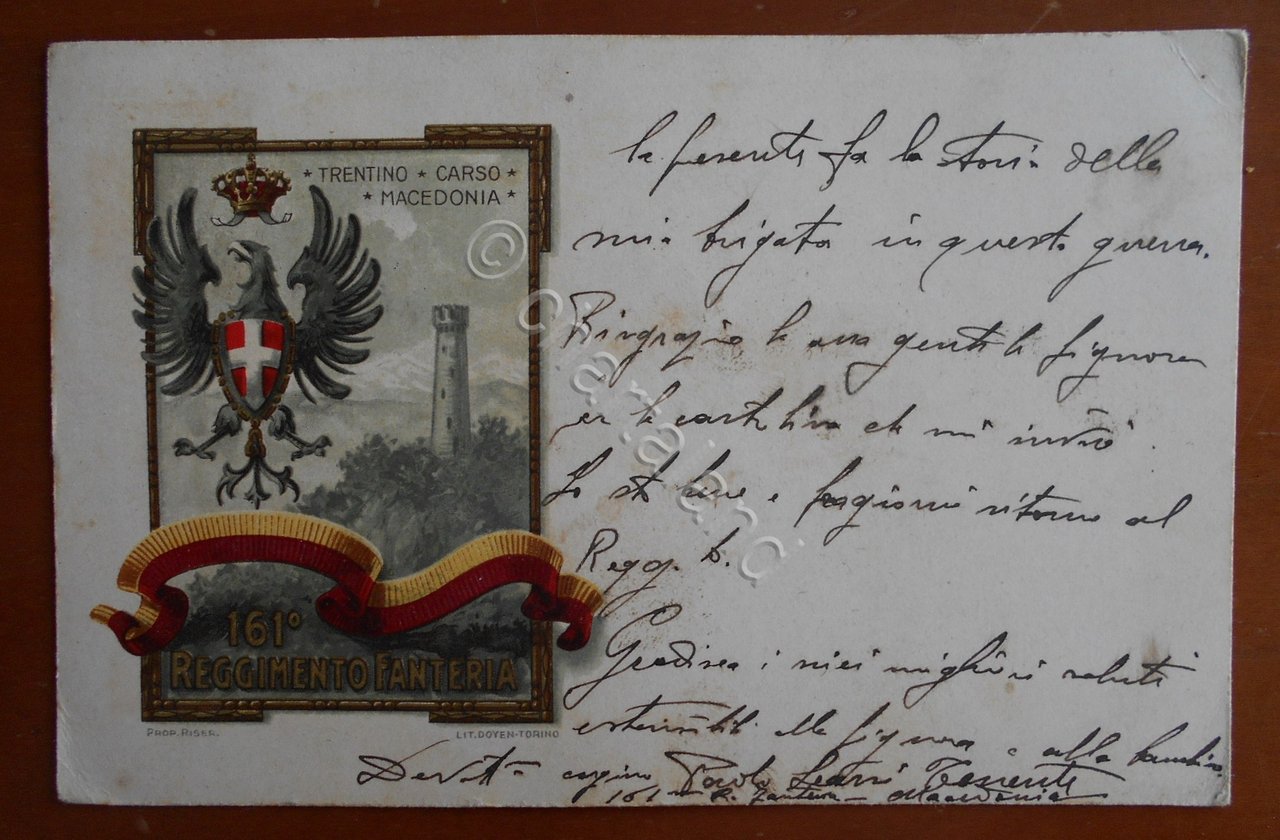 * TRENTINO * CARSO *
* MACEDONIA *
161º
REGGIMENTO FANTERIA
PROP. RISER.
LIT. DOYEN-TORINO
la presente fa la storia della
mia brigata in questa guerra.
Ringrazio la sua gentile signora
per la cartolina che mi inviò.
Io sto bene e fra giorni ritorno al
Regg.to.
Gradisca i miei migliori saluti
estensibili alla signora e alla bambina
Devot cugino Paolo Tenente
161 R. Fanteria - Macedonia
©